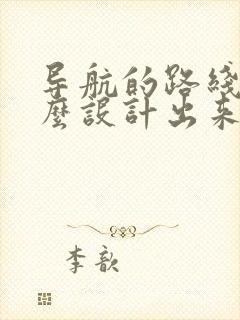 导航的路线
麼設計出来
李歆